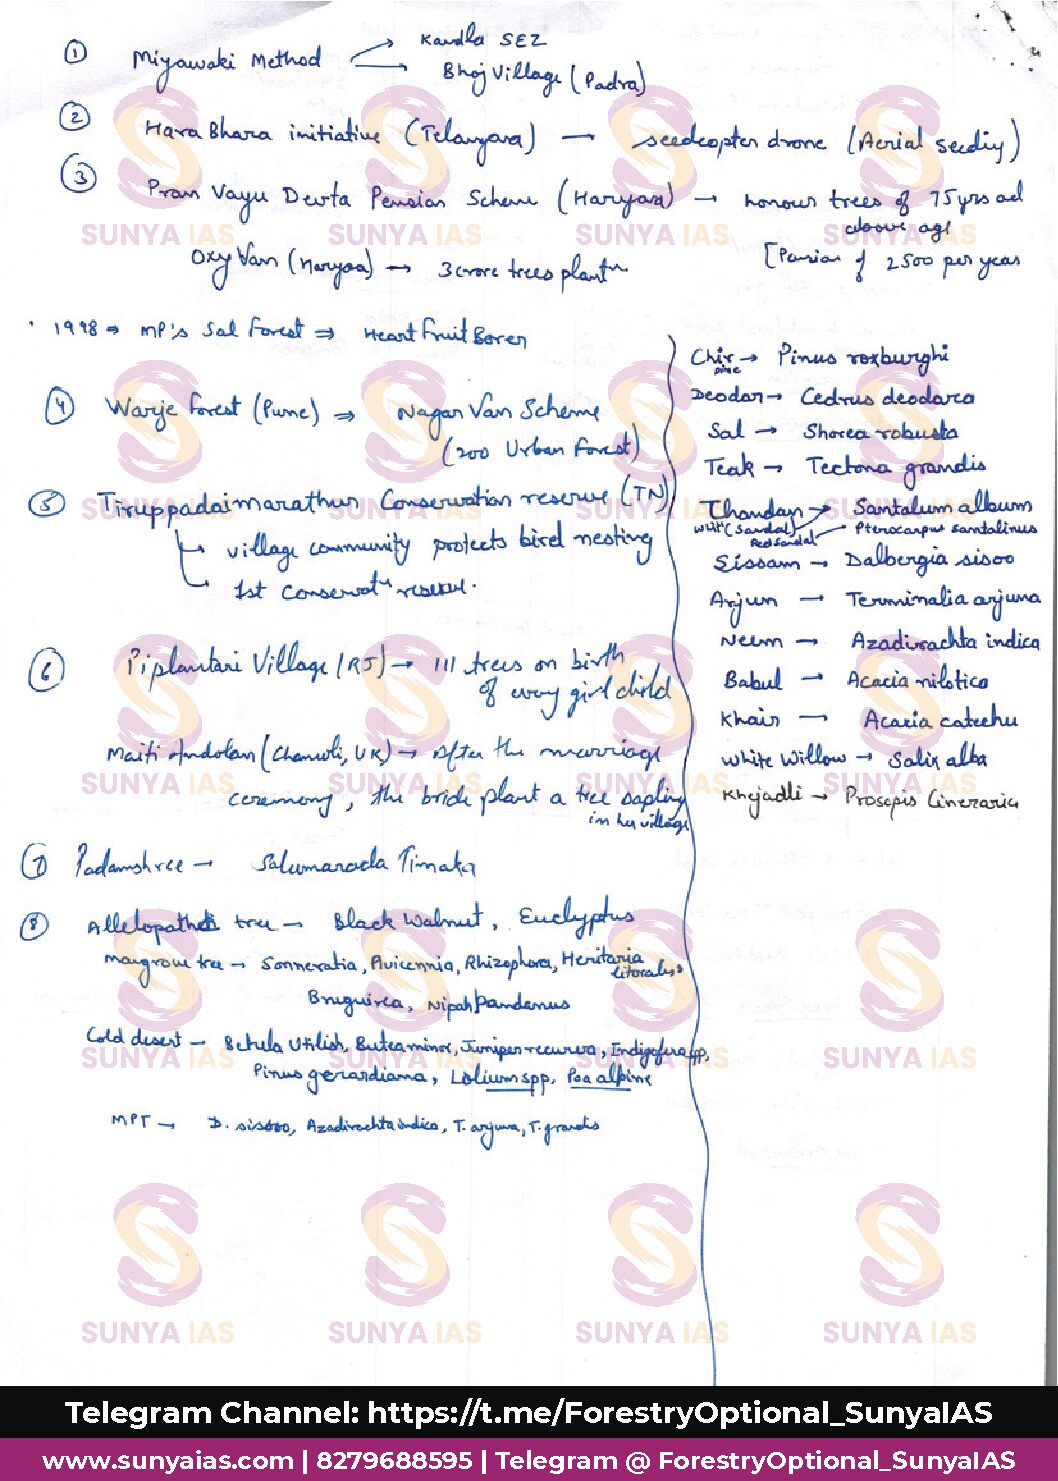 ① Miyawaki Method → Kandla SEZ
→ Bhoj Village (Padra)
② Hara Bhara initiative (Telangana) — seedcopter drone (Aerial seeding)
③ Pran Vayu Devta Pension Scheme (Haryana) → honour trees of 75 yrs and
above age
Oxy Van (Haryana) → 3 crore trees plantⁿ [Pension of 2500 per year
1998 → MP's Sal Forest ⇒ Heart Fruit Borer
④ Warje Forest (Pune) ⇒ Nagar Van Scheme
(200 Urban Forest)
⑤ Tiruppadaimarathur Conservation reserve (TN)
→ village community protects bird nesting
→ 1st Conservatⁿ reserve.
⑥ Piplantari Village (RJ) → 111 trees on birth
of every girl child
Maiti Andolan (Chamoli, UK) → After the marriage
ceremony, the bride plant a tree sapling
in her village
⑦ Padamshree — Salumarada Timaka
⑧ Allelopathic tree — Black Walnut, Euclyptus
Mangrove tree — Sonneratia, Avicennia, Rhizophora, Heritaria
litoralis,
Bruguirea, Nipah Pandanus
Cold desert — Betula Utilish, Butea minor, Juniper recurva, Indigofera spp,
Pinus gerardiana, Lolium spp, Poa alpine
MPT — D. sisooo, Azadirachta indica, T. arjuna, T. grandis
Chir → Pinus roxburghi
pine
Deodar → Cedrus deodara
Sal → Shorea robusta
Teak → Tectona grandis
Chandan → Santalum album
White (Sandal)
Red Sandal → Pterocarpus santalinus
Sissam → Dalbergia sisoo
Arjun → Terminalia arjuna
Neem — Azadirachta indica
Babul → Acacia nilotica
Khair — Acacia catechu
White Willow → Salix alba
Khejadli → Prosopis Cineraria
SUNYA IAS SUNYA IAS SUNYA IAS SUNYA IAS
SUNYA IAS SUNYA IAS SUNYA IAS SUNYA IAS
SUNYA IAS SUNYA IAS SUNYA IAS SUNYA IAS
SUNYA IAS SUNYA IAS SUNYA IAS SUNYA IAS
SUNYA IAS SUNYA IAS SUNYA IAS SUNYA IAS
Telegram Channel: https://t.me/ForestryOptional_SunyaIAS
www.sunyaias.com | 8279688595 | Telegram @ ForestryOptional_SunyaIAS